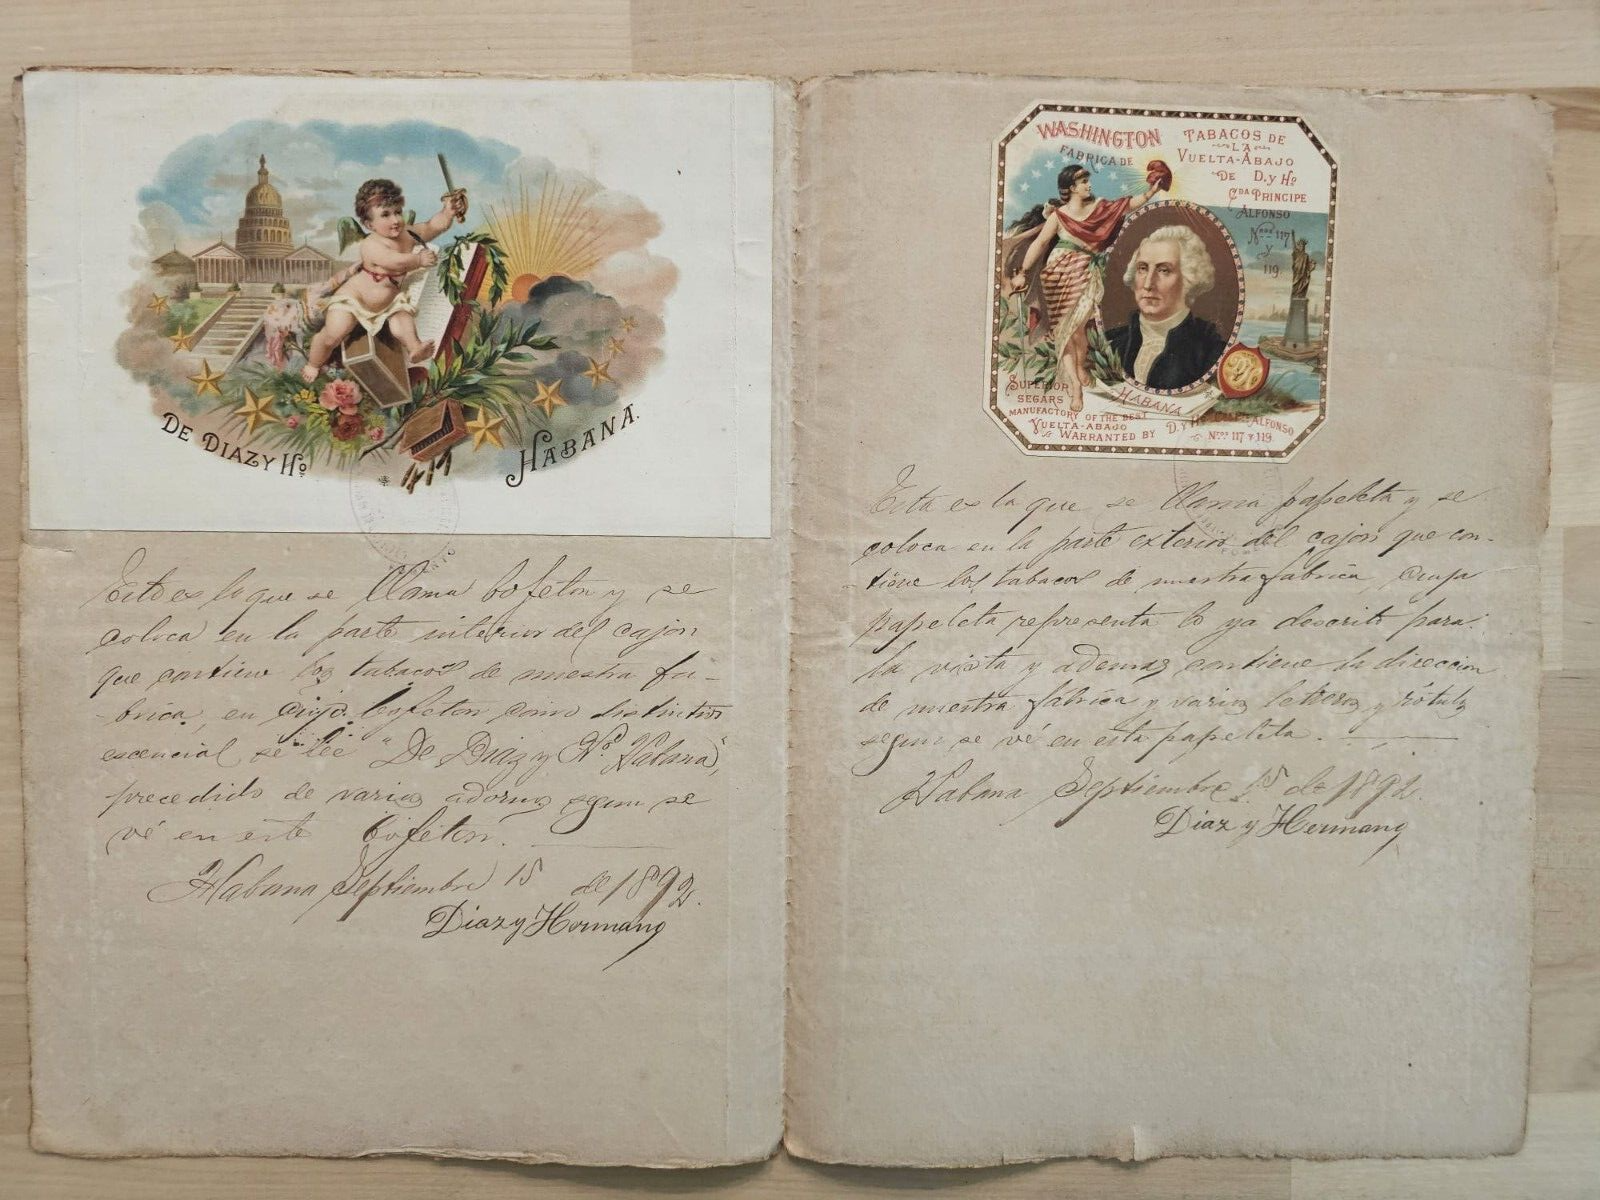 DE DIAZ Y Hº
HABANA.
Esto es lo que se llama bofeton y se
coloca en la parte interior del cajon
que contiene los tabacos de nuestra fa-
-brica, en cuyo bofeton como distintivo
escencial se lee "De Diaz y Hº Habana",
precedido de varios adornos segun se
vé en este bofeton.
Habana Septiembre 15 de 1892.
Diaz y Hermano
WASHINGTON
FABRICA DE
TABACOS DE
LA
VUELTA-ABAJO
DE D. y Hº
Cda PRINCIPE
ALFONSO
Nros 117
y
119
HABANA
SUPERIOR
SEGARS
MANUFACTORY OF THE BEST
VUELTA-ABAJO
WARRANTED BY
D. y Hº
ALFONSO
Nros 117 y 119
Esta es la que se llama papeleta y se
coloca en la parte exterior del cajon que con-
-tiene los tabacos de nuestra fabrica, cuya
papeleta representa lo ya descrito para
la vista y ademas contiene la direccion
de nuestra fabrica y varios letreros y rótulos
segun se vé en esta papeleta.
Habana Septiembre 15 de 1892.
Diaz y Hermano